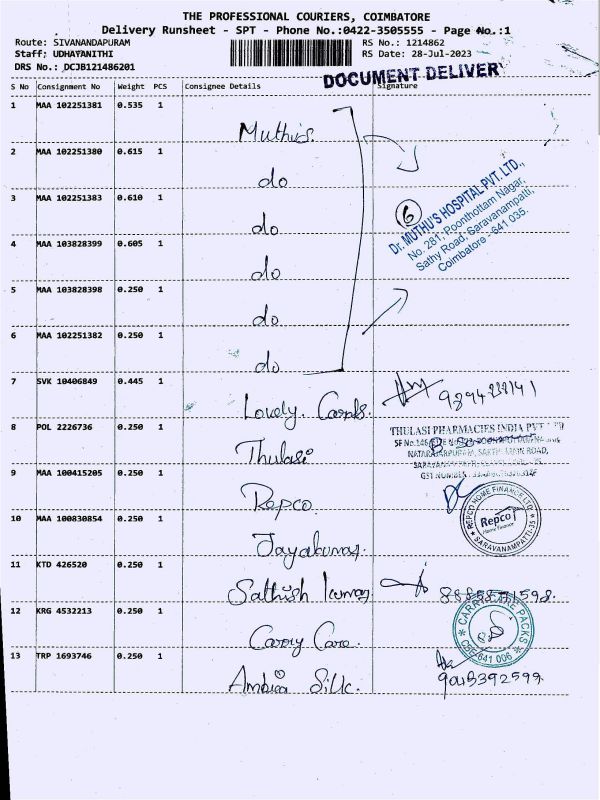 THE PROFESSIONAL COURIERS, COIMBATORE
Delivery Runsheet - SPT - Phone No.:0422-3505555 - Page No.:1
Route: SIVANANDAPURAM
RS No.: 1214862
Staff: UDHAYANITHI
RS Date: 28-Jul-2023
DRS No.: DCJB121486201
DOCUMENT DELIVER
S No Consignment No Weight PCS Consignee Details Signature
1 MAA 102251381 0.535 1 Muthu's.
2 MAA 102251380 0.615 1 do
3 MAA 102251383 0.610 1 do
4 MAA 103828399 0.605 1 do
5 MAA 103828398 0.250 1 do
6 MAA 102251382 0.250 1 do
6
Dr. MUTHU'S HOSPITAL PVT. LTD.,
No. 281, Poonthottam Nagar,
Sathy Road, Saravanampatti,
Coimbatore - 641 035.
7 SVK 10406849 0.445 1 Lovely. Cards.
8 POL 2226736 0.250 1 Thulasi
THULASI PHARMACIES INDIA PVT
9 MAA 100415205 0.250 1 Repco.
REPCO HOME FINANCE LTD
Repco
Home Finance
SARAVANAMPATTI-35
10 MAA 100830854 0.250 1 Jayakumar.
11 KTD 426520 0.250 1 Sathish kumar
12 KRG 4532213 0.250 1 Carry Care.
PACKS
CBE-641 006
13 TRP 1693746 0.250 1 Ambica Silk.
9045392599